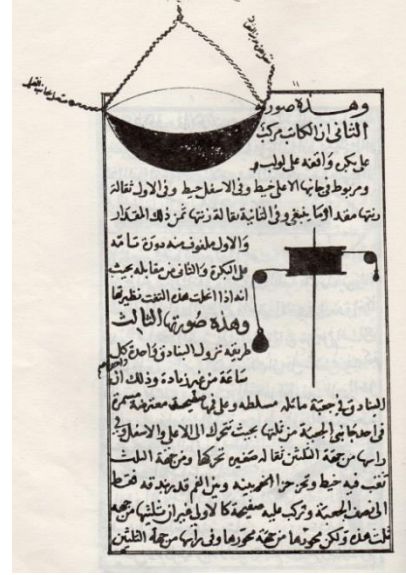 وهذه صورة
الثانى ان الكاتب مركب
على بكرة واقعه على لولب و
ومربوط فى جانبها الاعلى خيط وفى الاسفل خيط وفى الاول ثقالة
زنتها مقدار ما ينبغى وفى الثانية ثقالة زنتها ثمن ذلك المقدار
والاول ملفوف منه دورة تامه
على البكرة والثانى من مقابله بحيث
انه اذا انحلت هذه التفت نظيرتها
وهذه صورتها الثالث
طريقة نزول البنادق واحدة كل
ساعة من غير زيادة وذلك ان
للبنادق فى جعبة مائله مسلطه وعلى فم صفيحة معترضة مسمرة
فى احد جانبى الجعبة من ثلثها بحيث تتحرك الى الاعلى والاسفل وفى
راسها من جهة الثلثين ثقاله صغيره تحركها ومن جهة الثلث
ثقب فيه خيط
المصف الجعبة وتركب عليه صفيحة كالاولى غير ان ثلثيها من جهة
ثلث هذه ولكن محورها من جهة محورها وفى راسها من جهة الثلثين